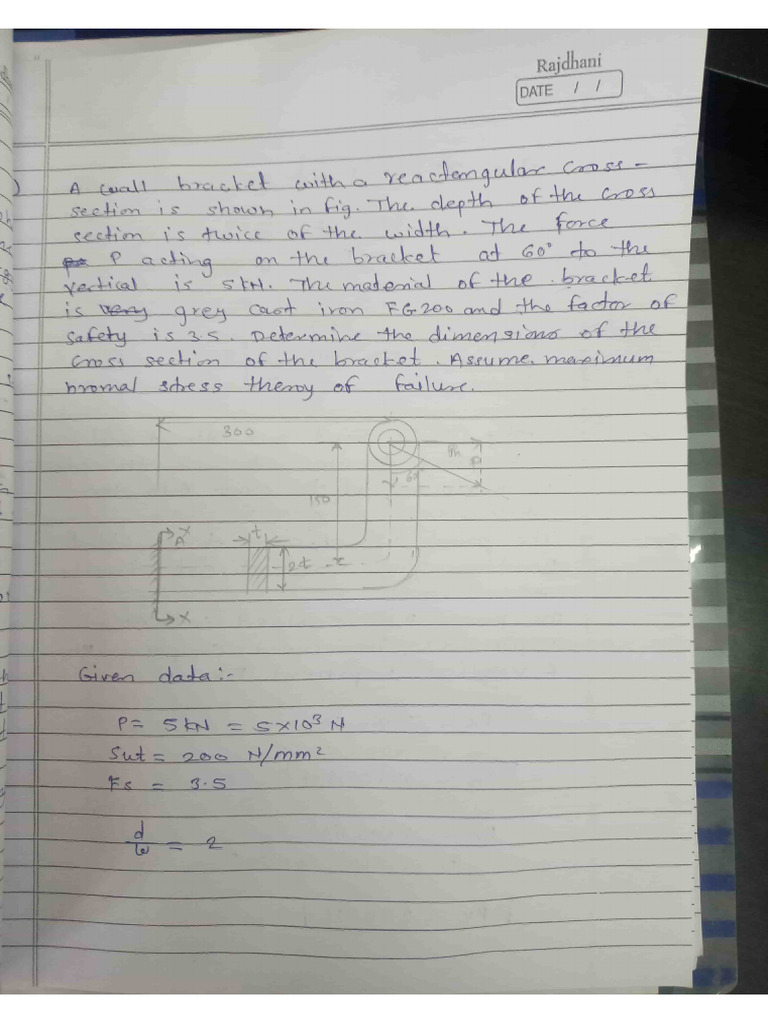 Rajdhani
DATE / /
) A wall bracket with a reactengular cross-
section is shown in fig. The depth of the cross
section is twice of the width. The force
P acting on the bracket at 60° to the
vertical is 5 kN. The material of the bracket
is grey cast iron FG 200 and the factor of
safety is 3.5. Determine the dimensions of the
cross section of the bracket. Assume maximum
bromal stress theroy of failure.
300
Ph
150
X
A
t
2t
X
Given data:-
P = 5 kN = 5×10³ N
Sut = 200 N/mm²
Fs = 3.5
d/w = 2